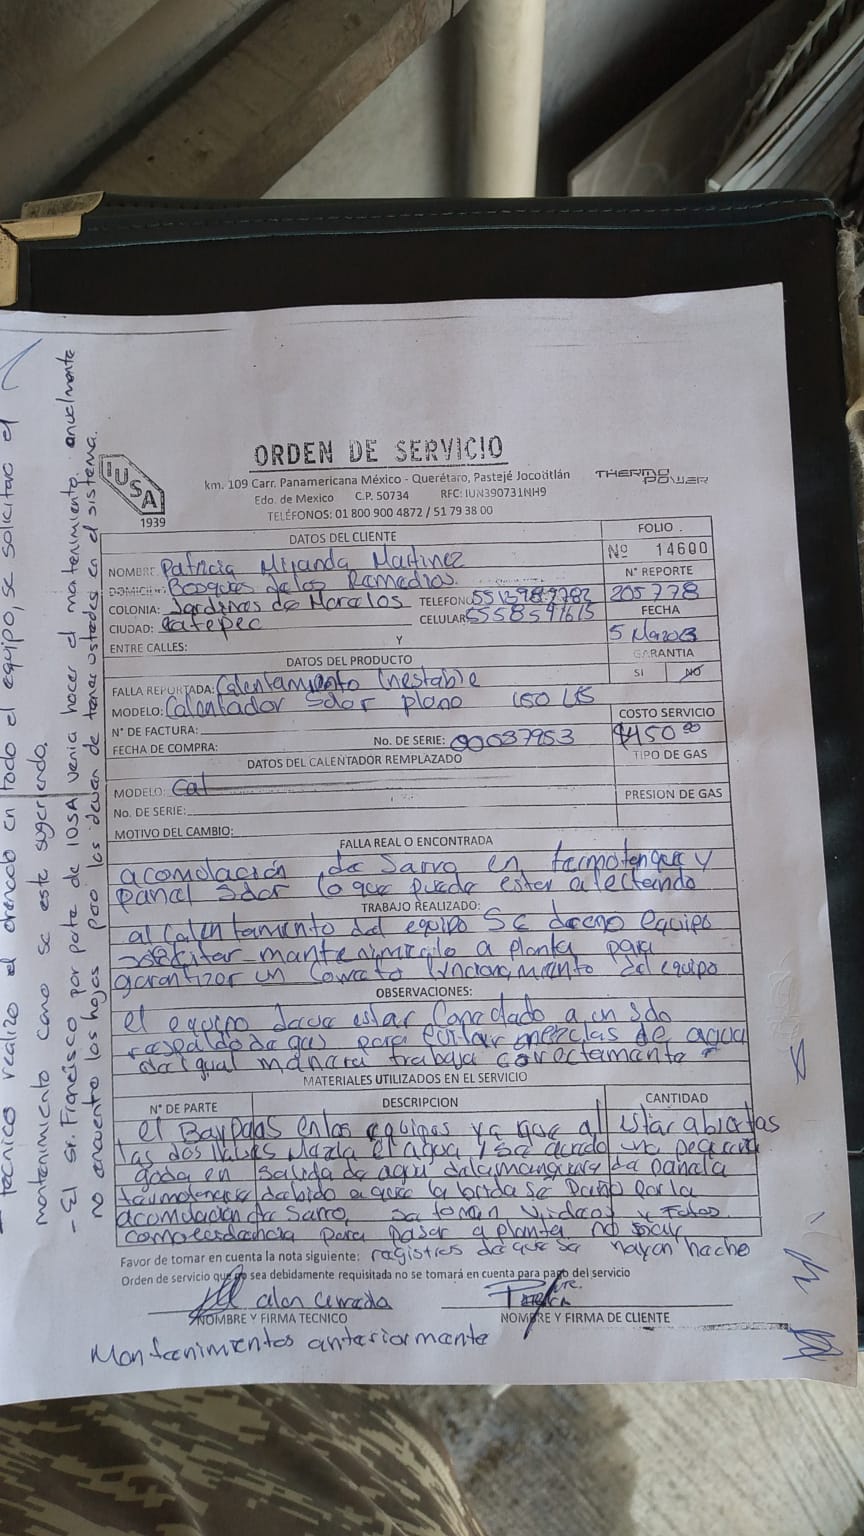 ORDEN DE SERVICIO
IUSA
1939
km. 109 Carr. Panamericana México - Querétaro, Pastejé Jocotitlán
Edo. de Mexico C.P. 50734 RFC: IUN390731NH9
TELÉFONOS: 01 800 900 4872 / 51 79 38 00
THERMO POWER
DATOS DEL CLIENTE
FOLIO
Nº 14600
NOMBRE: Patricia Miranda Martinez
Nº REPORTE
205778
DOMICILIO: Bosques de los Remedios.
COLONIA: Jardines de Morelos TELEFONO:
CIUDAD: Ecatepec CELULAR: 5558591615
FECHA
5 Marzo
ENTRE CALLES: Y
DATOS DEL PRODUCTO
GARANTIA
SI NO
FALLA REPORTADA: Calentamiento Inestable
MODELO: Calentador Solar plano 150 Lts
COSTO SERVICIO
$450.00
N° DE FACTURA:
FECHA DE COMPRA: No. DE SERIE: 00037953
DATOS DEL CALENTADOR REMPLAZADO
TIPO DE GAS
MODELO: Cal
PRESION DE GAS
No. DE SERIE:
MOTIVO DEL CAMBIO:
FALLA REAL O ENCONTRADA
acomolación de Sarro en termotanque y
panel Solar lo que puede estar afectando
TRABAJO REALIZADO:
al Calentamiento del equipo Se dreno equipo
solicitar mantenimiento a planta para
garantizar un Correcto funcionamiento del equipo
OBSERVACIONES:
el equipo debe estar Conectado a un solo
respaldo de gas para evitar mezclas de agua
de igual manera trabaja correctamente
MATERIALES UTILIZADOS EN EL SERVICIO
N° DE PARTE DESCRIPCION CANTIDAD
el Baypas en los equipos ya que al estar abiertas
las dos valves Mezcla el agua y se una pequeña
en salida de agua de la manguera de panel a
termotanque debido a que la brida se Daño por la
acomolación de Sarro, se toman Videos y Fotos
para pasar a planta no
Favor de tomar en cuenta la nota siguiente: registros de que se hayan hecho
Orden de servicio que no sea debidamente requisitada no se tomará en cuenta para pago del servicio
alan
NOMBRE Y FIRMA TECNICO NOMBRE Y FIRMA DE CLIENTE
Mantenimientos anteriormente
tecnico realizo el drenado en todo el equipo, se solicitac el
mantenimiento como se este sugeriendo.
- El sr. Francisco por parte de IUSA venia hacer el mantenimiento anualmente
no encuentro las hojas pero los deven de tener ustedes en el sistema.